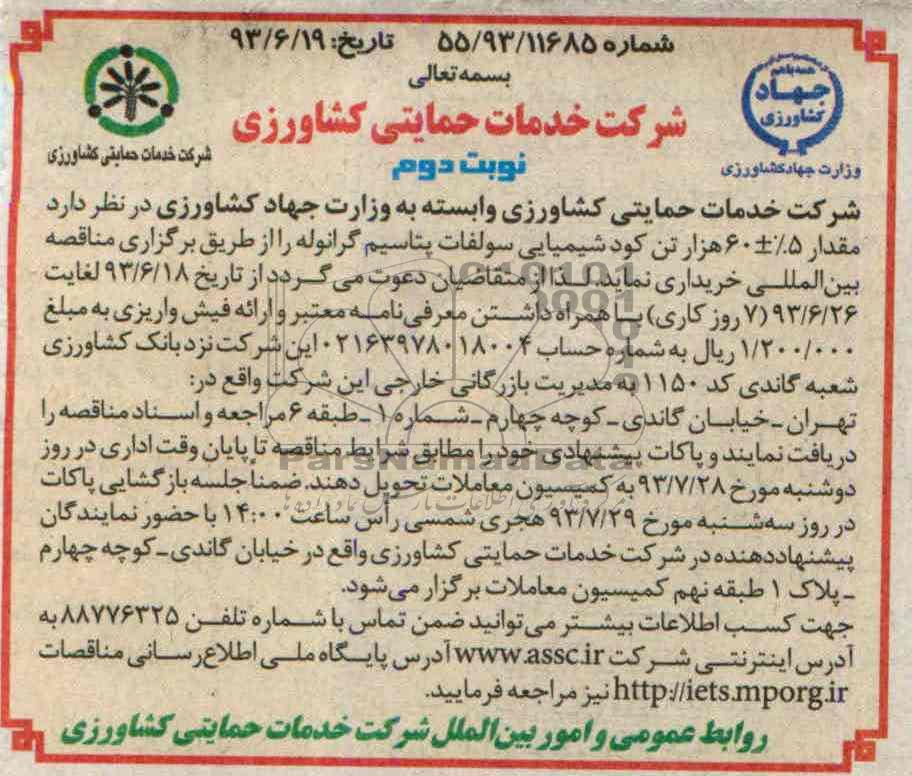 شماره ۵۵/۹۳/۱۱۶۸۵ تاریخ: ۹۳/۶/۱۹
بسمه تعالی
همه با هم
جهاد
کشاورزی
وزارت جهاد کشاورزی
شرکت خدمات حمایتی کشاورزی
شرکت خدمات حمایتی کشاورزی
نوبت دوم
شرکت خدمات حمایتی کشاورزی وابسته به وزارت جهاد کشاورزی در نظر دارد
مقدار ۵٪±۶۰ هزار تن کود شیمیایی سولفات پتاسیم گرانوله را از طریق برگزاری مناقصه
بین‌المللی خریداری نماید. لذا از متقاضیان دعوت می گردد از تاریخ ۹۳/۶/۱۸ لغایت
۹۳/۶/۲۶ (۷ روز کاری) با همراه داشتن معرفی نامه معتبر و ارائه فیش واریزی به مبلغ
۱/۲۰۰/۰۰۰ ریال به شماره حساب ۰۲۱۶۳۹۷۸۰۱۸۰۰۴ این شرکت نزد بانک کشاورزی
شعبه گاندی کد ۱۱۵۰ به مدیریت بازرگانی خارجی این شرکت واقع در:
تهران ـ خیابان گاندی ـ کوچه چهارم ـ شماره ۱ ـ طبقه ۶ مراجعه و اسناد مناقصه را
دریافت نمایند و پاکات پیشنهادی خود را مطابق شرایط مناقصه تا پایان وقت اداری در روز
دوشنبه مورخ ۹۳/۷/۲۸ به کمیسیون معاملات تحویل دهند. ضمناً جلسه بازگشایی پاکات
در روز سه‌شنبه مورخ ۹۳/۷/۲۹ هجری شمسی رأس ساعت ۱۴:۰۰ با حضور نمایندگان
پیشنهاددهنده در شرکت خدمات حمایتی کشاورزی واقع در خیابان گاندی ـ کوچه چهارم
ـ پلاک ۱ طبقه نهم کمیسیون معاملات برگزار می‌شود.
جهت کسب اطلاعات بیشتر می‌توانید ضمن تماس با شماره تلفن ۸۸۷۷۶۳۲۵ به
آدرس اینترنتی شرکت www.assc.ir آدرس پایگاه ملی اطلاع‌رسانی مناقصات
http://iets.mporg.ir نیز مراجعه فرمایید.
روابط عمومی و امور بین‌الملل شرکت خدمات حمایتی کشاورزی
ParsNamadData